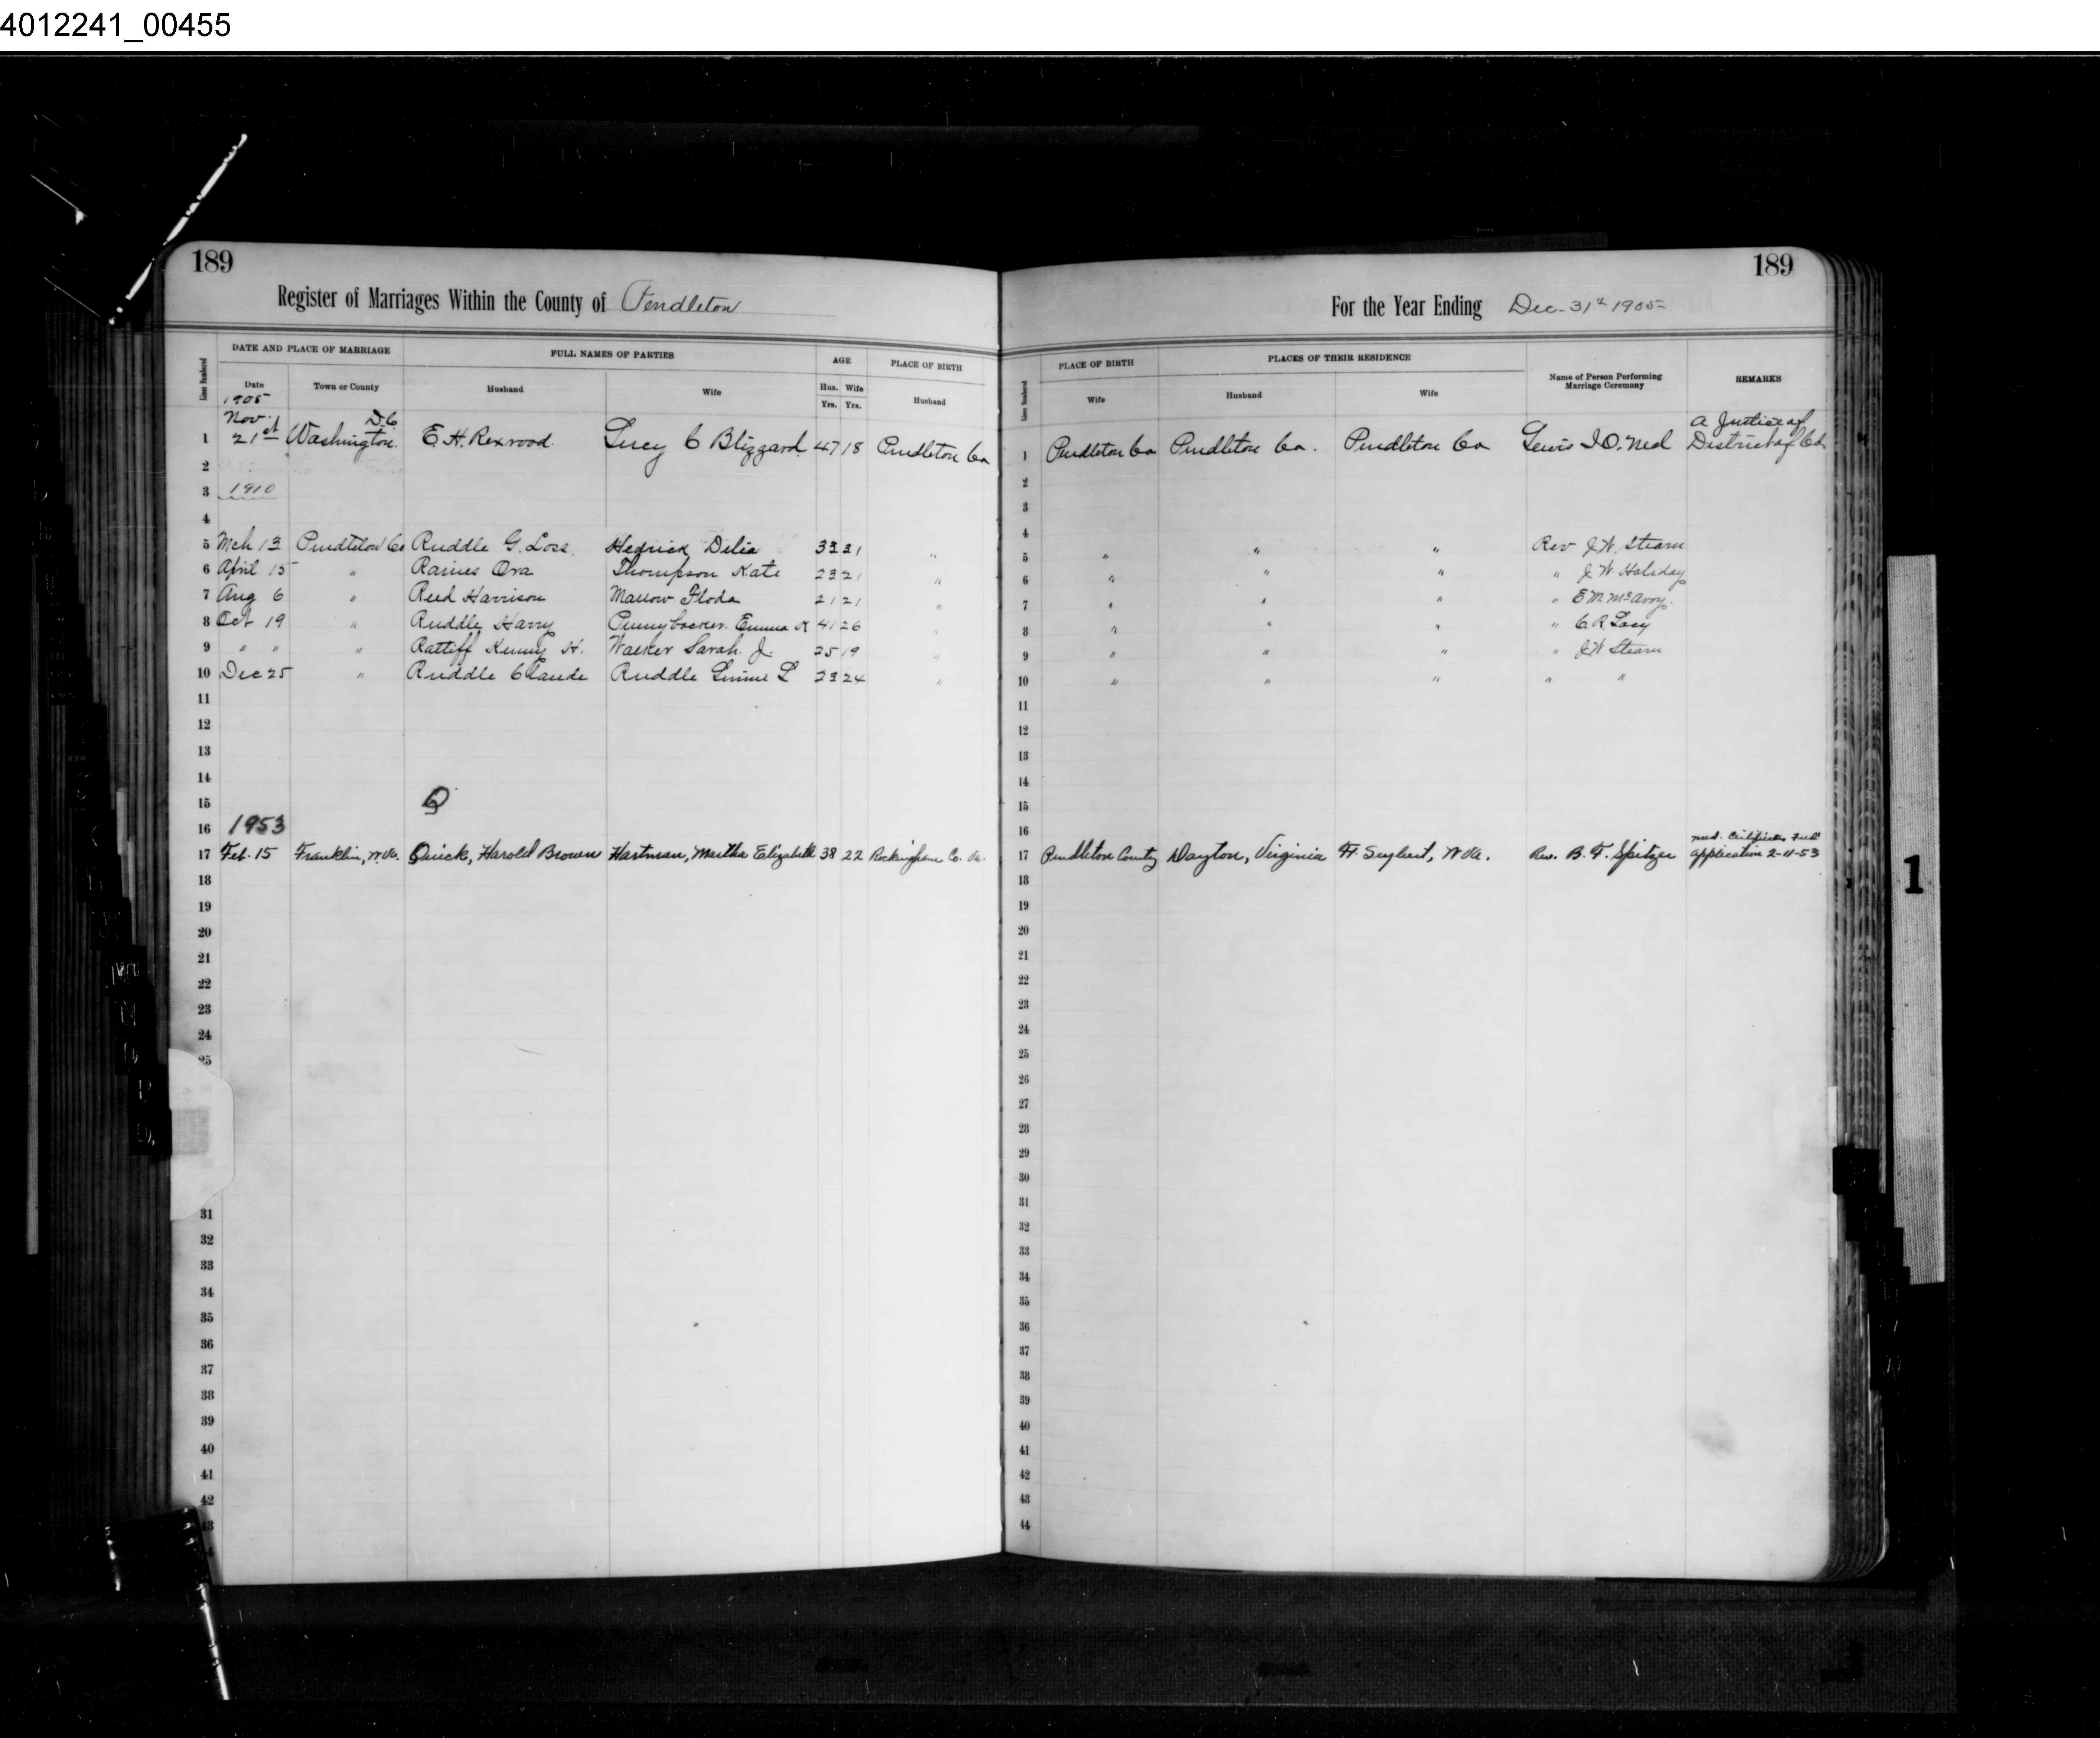 4012241_00455
189
189
Register of Marriages Within the County of Pendleton
For the Year Ending Dec. 31st 1905
Lines Numbered
DATE AND PLACE OF MARRIAGE
FULL NAMES OF PARTIES
AGE
PLACE OF BIRTH
Lines Numbered
PLACE OF BIRTH
PLACES OF THEIR RESIDENCE
Name of Person Performing Marriage Ceremony
REMARKS
Date Town or County Husband Wife Hus. Yrs. Wife Yrs. Husband
Wife Husband Wife
1905
1 Nov 21st Washington D.C. E. H. Rexroad Lucy C Blizzard 47 18 Pendleton Co 1 Pendleton Co Pendleton Co. Pendleton Co Lewis I.O. Neil A Justice of District of Col.
2 2
3 1910 3
4 4
5 Mch 13 Pendleton Co Ruddle G. Loss. Hedrick Delia 33 21 " 5 " " " Rev J. W. Stearn
6 April 15 " Raines Ora Thompson Kate 23 21 " 6 " " " " J W Haliday
7 Aug 6 " Reed Harrison Mallow Floda 21 21 " 7 " " " " E M McAvoy.
8 Oct 19 " Ruddle Harry Pennybacker. Emma K 41 26 " 8 " " " " C. R. Lacy
9 " " " Ratliff Kenny H. Walker Sarah. J. 25 19 " 9 " " " " J W Stearn
10 Dec 25 " Ruddle Claude Ruddle L 23 24 " 10 " " " " "
11 11
12 12
13 13
14 14
15 Q 15
16 1953 16
17 Feb. 15 Franklin, W.Va. Quick, Harold Brown Hartman, Martha Elizabeth 38 22 Rockingham Co. Va. 17 Pendleton County Dayton, Virginia Ft. Seybert, W Va. Rev. B. F. Spitzer Med. Certificates Filed Application 2-11-53
18 18
19 19
20 20
21 21
22 22
23 23
24 24
25 25
26
27
28
29
30
31 31
32 32
33 33
34 34
35 35
36 36
37 37
38 38
39 39
40 40
41 41
42 42
43 43
44
1